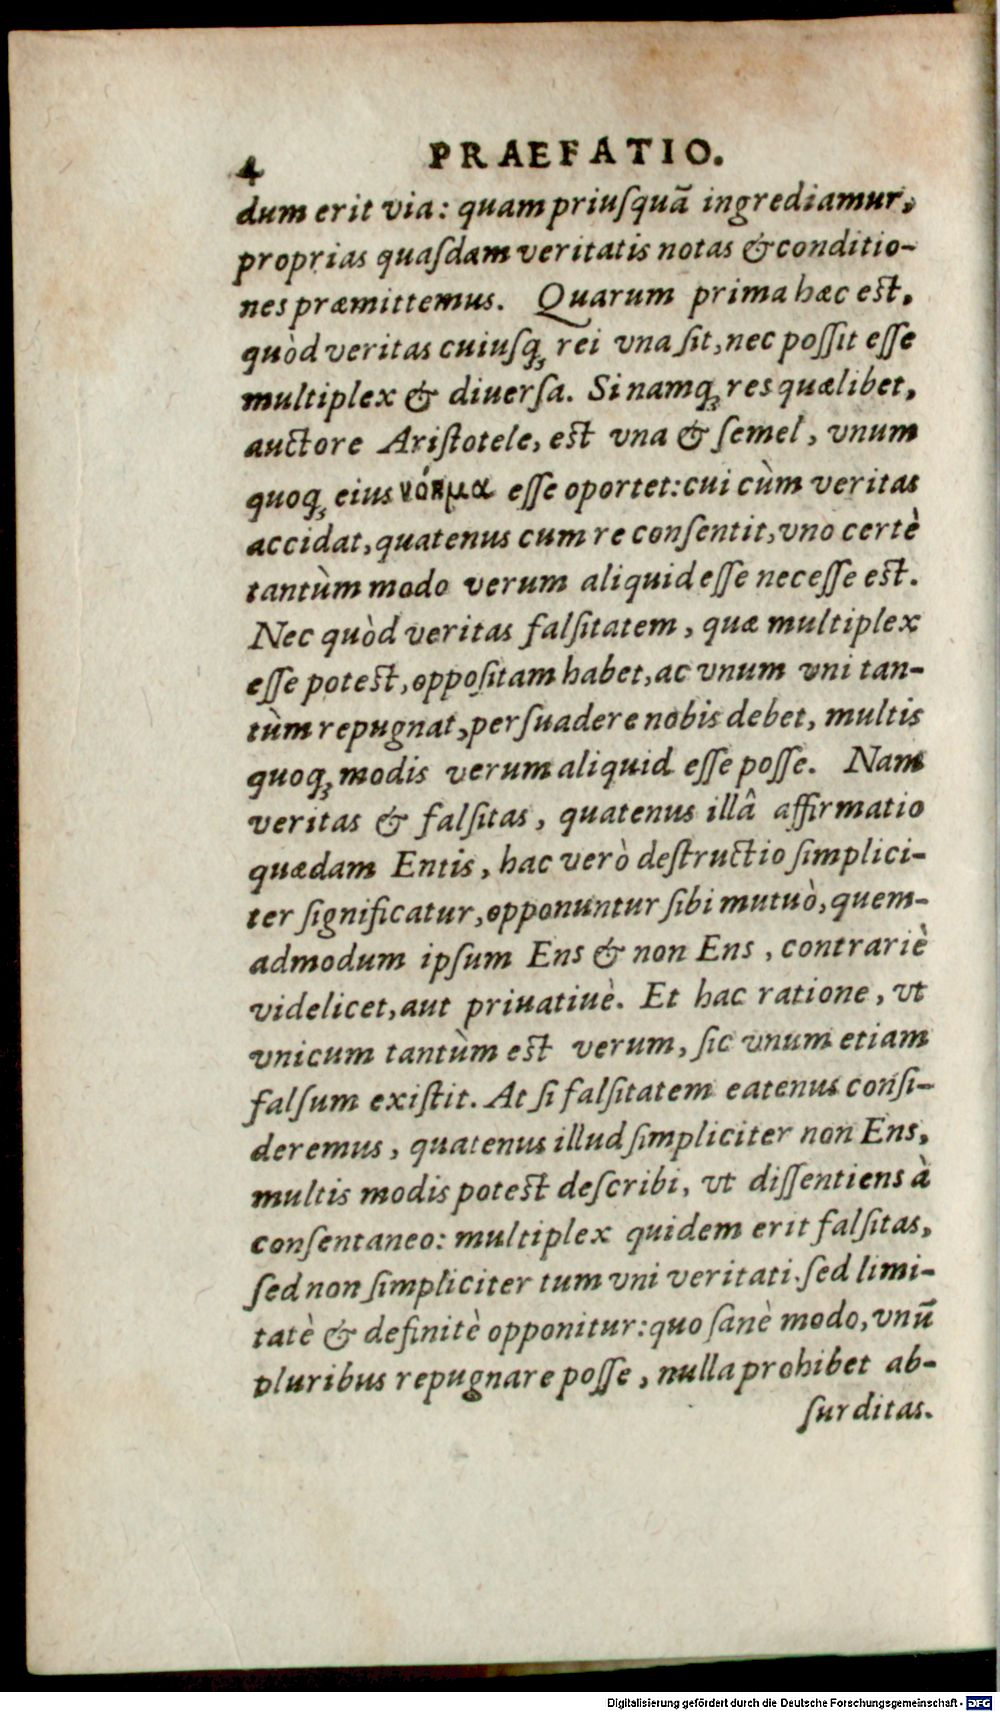 4 PRAEFATIO.
dum erit via: quam priuſquā ingrediamur,
proprias quaſdam veritatis notas & conditio-
nes præmittemus. Quarum prima hæc est,
quòd veritas cuiuſq; rei vna ſit, nec poſſit eſſe
multiplex & diuerſa. Si namq; res quælibet,
auctore Ariſtotele, est vna & ſemel, vnum
quoq; eius νόημα eſſe oportet: cui cùm veritas
accidat, quatenus cum re conſentit, vno certè
tantùm modo verum aliquid eſſe neceſſe est.
Nec quòd veritas falſitatem, quæ multiplex
eſſe potest, oppoſitam habet, ac vnum vni tan-
tùm repugnat, perſuadere nobis debet, multis
quoq; modis verum aliquid eſſe poſſe. Nam
veritas & falſitas, quatenus illâ affirmatio
quædam Entis, hac verò deſtructio ſimplici-
ter ſignificatur, opponuntur ſibi mutuò, quem-
admodum ipſum Ens & non Ens, contrariè
videlicet, aut priuatiuè. Et hac ratione, vt
vnicum tantùm est verum, ſic vnum etiam
falſum exiſtit. At ſi falſitatem eatenus conſi-
deremus, quatenus illud ſimpliciter non Ens,
multis modis potest deſcribi, vt diſſentiens à
conſentaneo: multiplex quidem erit falſitas,
ſed non ſimpliciter tum vni veritati. ſed limi-
tatè & definitè opponitur: quo ſanè modo, vnū
pluribus repugnare poſſe, nulla prohibet ab-
ſurditas.
Digitalisierung gefördert durch die Deutsche Forschungsgemeinschaft - DFG